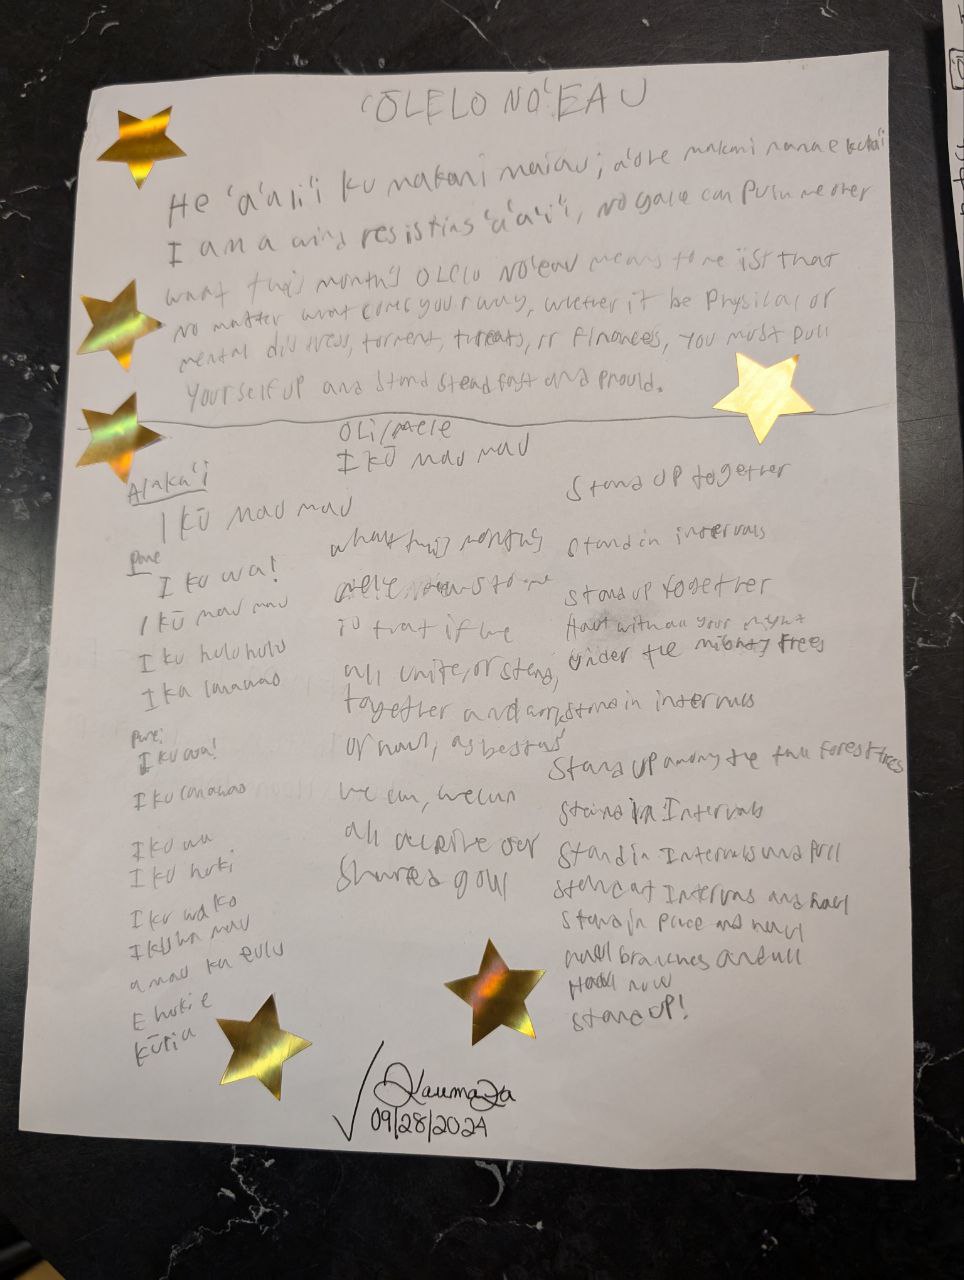 ʻŌLELO NOʻEAU
He ʻaʻaliʻi ku makani maiau; aʻohe makani nana e kulaʻi
I am a wind resisting ʻaʻaʻliʻi, no gale can push me over
what this month's OLELO NOʻEAU means to me is that
no matter what comes your way, whether it be Physical or
mental distress, torment, threats, or Finances, you must pull
yourself up and stand steadfast and proud.
OLI/mele
I KŪ mau mau
Alakaʻi
I KŪ mau mau
Pane
I ku wa!
I KŪ mau mau
I ku huluhulu
I ka lanawao
Pane:
I ku wa!
I ku lanawao
I ku wa
I ku huki
I ku wa ko
I ku wa mau
a mau ka eulu
E huki e
Kūlia
what this months
mele means to me
is that if we
all unite, or stand
together and work
or haul, as best as
we can, we can
all achieve our
shared goal
Stand up together
Stand in intervals
Stand up together
Haul with all your might
Under the mighty trees
stand in intervals
Stand up among the tall forest trees
Stand in Intervals
Stand in Intervals and pull
Stand at Intervals and haul
Stand in place and haul
haul branches and all
Haul now
stand up!
09/28/2024